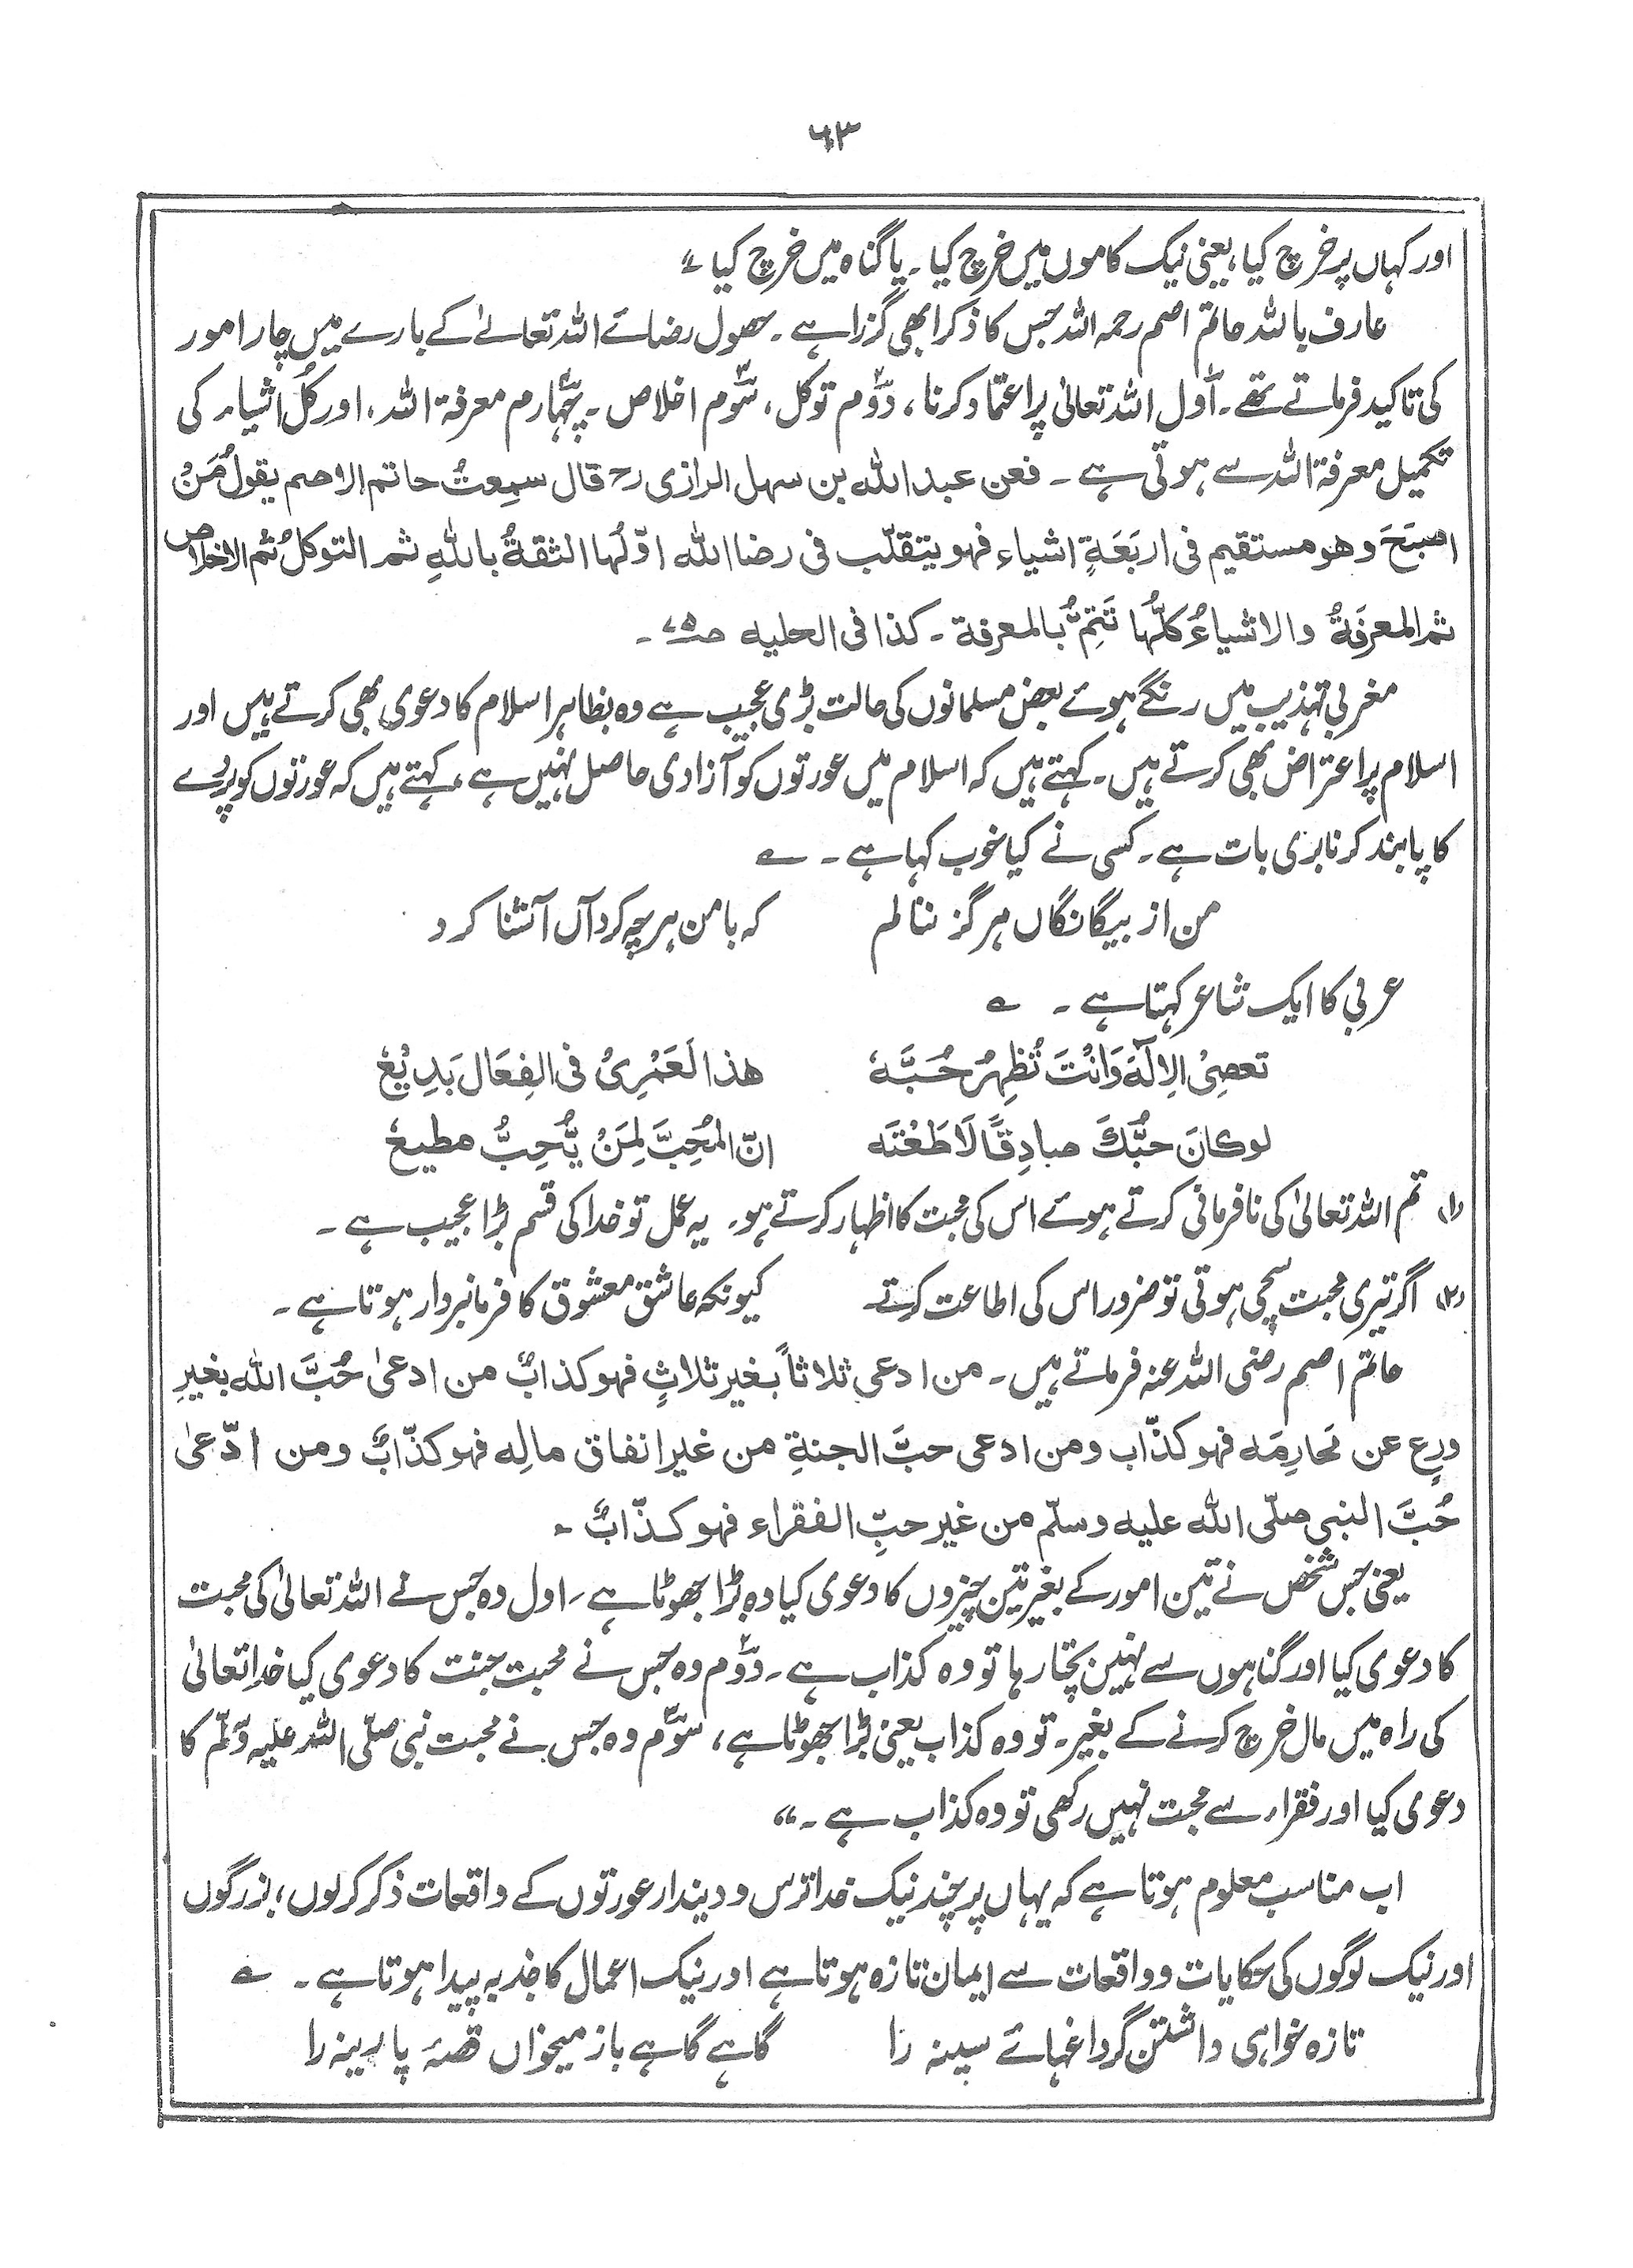 ۶۳
اور کہاں پر خرچ کیا، یعنی نیک کاموں میں خرچ کیا۔ یا گناہ میں خرچ کیا ؑ
عارف باللہ حاتم اصم رحمہ اللہ جس کا ذکر ابھی گزرا ہے۔ حصول رضائے اللہ تعالےٰ کے بارے میں چار امور
کی تاکید فرماتے تھے۔ اوّل اللہ تعالیٰ پر اعتماد کرنا، دوّم توکل، سوّم اخلاص۔ چہارم معرفۃ اللہ، اور کُل اشیاء کی
تکمیل معرفۃ اللہ سے ہوتی ہے ۔ فعن عبداللہ بن سہل الرازی رح قال سمِعتُ حاتم الاصم یقولُ مَنْ
اصبَحَ وھو مستقیم فی اربَعَۃٍ اشیاء فھو یتقلّب فی رضا اللہ اوّلُھا الثقۃُ باللہِ ثم التوکلُ ثم الاخلاص
ثم المعرفَۃُ والاشیاءُ کُلُّھا تَتِمُّ بالمعرفۃ۔ کذا فی الحلیہ ص۷۵۔
مغربی تہذیب میں رنگے ہوئے بعض مسلمانوں کی حالت بڑی عجیب ہے وہ بظاہر اسلام کا دعوی بھی کرتے ہیں اور
اسلام پر اعتراض بھی کرتے ہیں۔ کہتے ہیں کہ اسلام میں عورتوں کو آزادی حاصل نہیں ہے، کہتے ہیں کہ عورتوں کو پردے
کا پابند کرنا بری بات ہے۔ کسی نے کیا خوب کہا ہے ۔ ؎
من از بیگانگاں ہرگز ننالم کہ با من ہرچہ کرد آں آشنا کرد
عربی کا ایک شاعر کہتا ہے ۔ ؎
تعصِیْ الِالٰہَ وَانْتَ تُظہِرُ حُبَّہٗ ھذا لَعَمْرِیْ فی الفِعَال بَدِیْعٗ
لوکانَ حبُّکَ صادِقًا لَاَطَعْتَہ انّ المُحِبَّ لِمَنْ یُّحِبُّ مطیعٗ
(۱) تم اللہ تعالیٰ کی نافرمانی کرتے ہوئے اس کی محبت کا اظہار کرتے ہو۔ یہ عمل تو خدا کی قسم بڑا عجیب ہے ۔
(۲) اگر تیری محبت سچی ہوتی تو ضرور اس کی اطاعت کرتے۔ کیونکہ عاشق معشوق کا فرمانبردار ہوتا ہے ۔
حاتم اصم رضی اللہ عنہ فرماتے ہیں۔ من ادعی ثلاثاً بغیر ثلاثٍ فھو کذابٌ من ادعیٰ حُبَّ اللہ بغیرِ
ورِعٍ عن مَحارِمَہ فھو کذّاب ومن ادعی حبَّ الجنۃِ من غیر انفاق مالِہ فھو کذّابٌ ومن ادّعیٰ
حُبَّ النبی صلّی اللہ علیہ وسلّم من غیر حبِّ الفقراء فھو کذّابٌ ۔
یعنی جس شخص نے تین امور کے بغیر تین چیزوں کا دعوی کیا وہ بڑا جھوٹا ہے، اول وہ جس نے اللہ تعالیٰ کی محبت
کا دعوی کیا اور گناہوں سے نہیں بچتا رہا تو وہ کذاب ہے ۔ دوّم وہ جس نے محبت جنت کا دعوی کیا خدا تعالیٰ
کی راہ میں مال خرچ کرنے کے بغیر۔ تو وہ کذاب یعنی بڑا جھوٹا ہے، سوّم وہ جس نے محبت نبی صلّی اللہ علیہ وسلّم کا
دعوی کیا اور فقراء سے محبت نہیں رکھی تو وہ کذاب ہے ۔“
اب مناسب معلوم ہوتا ہے کہ یہاں پر چند نیک خدا ترس و دیندار عورتوں کے واقعات ذکر کرلوں؛ بزرگوں
اور نیک لوگوں کی حکایات و واقعات سے ایمان تازہ ہوتا ہے اور نیک اعمال کا جذبہ پیدا ہوتا ہے ۔ ؎
تازہ خواہی داشتن گر داغہائے سینہ را گاہے گاہے باز میخواں قصۂ پارینہ را